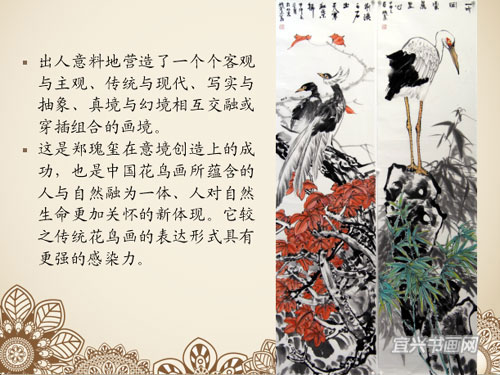 出人意料地营造了一个个客观
与主观、传统与现代、写实与
抽象、真境与幻境相互交融或
穿插组合的画境。
这是郑瑰玺在意境创造上的成
功，也是中国花鸟画所蕴含的
人与自然融为一体、人对自然
生命更加关怀的新体现。它较
之传统花鸟画的表达形式具有
更强的感染力。
宜兴书画网